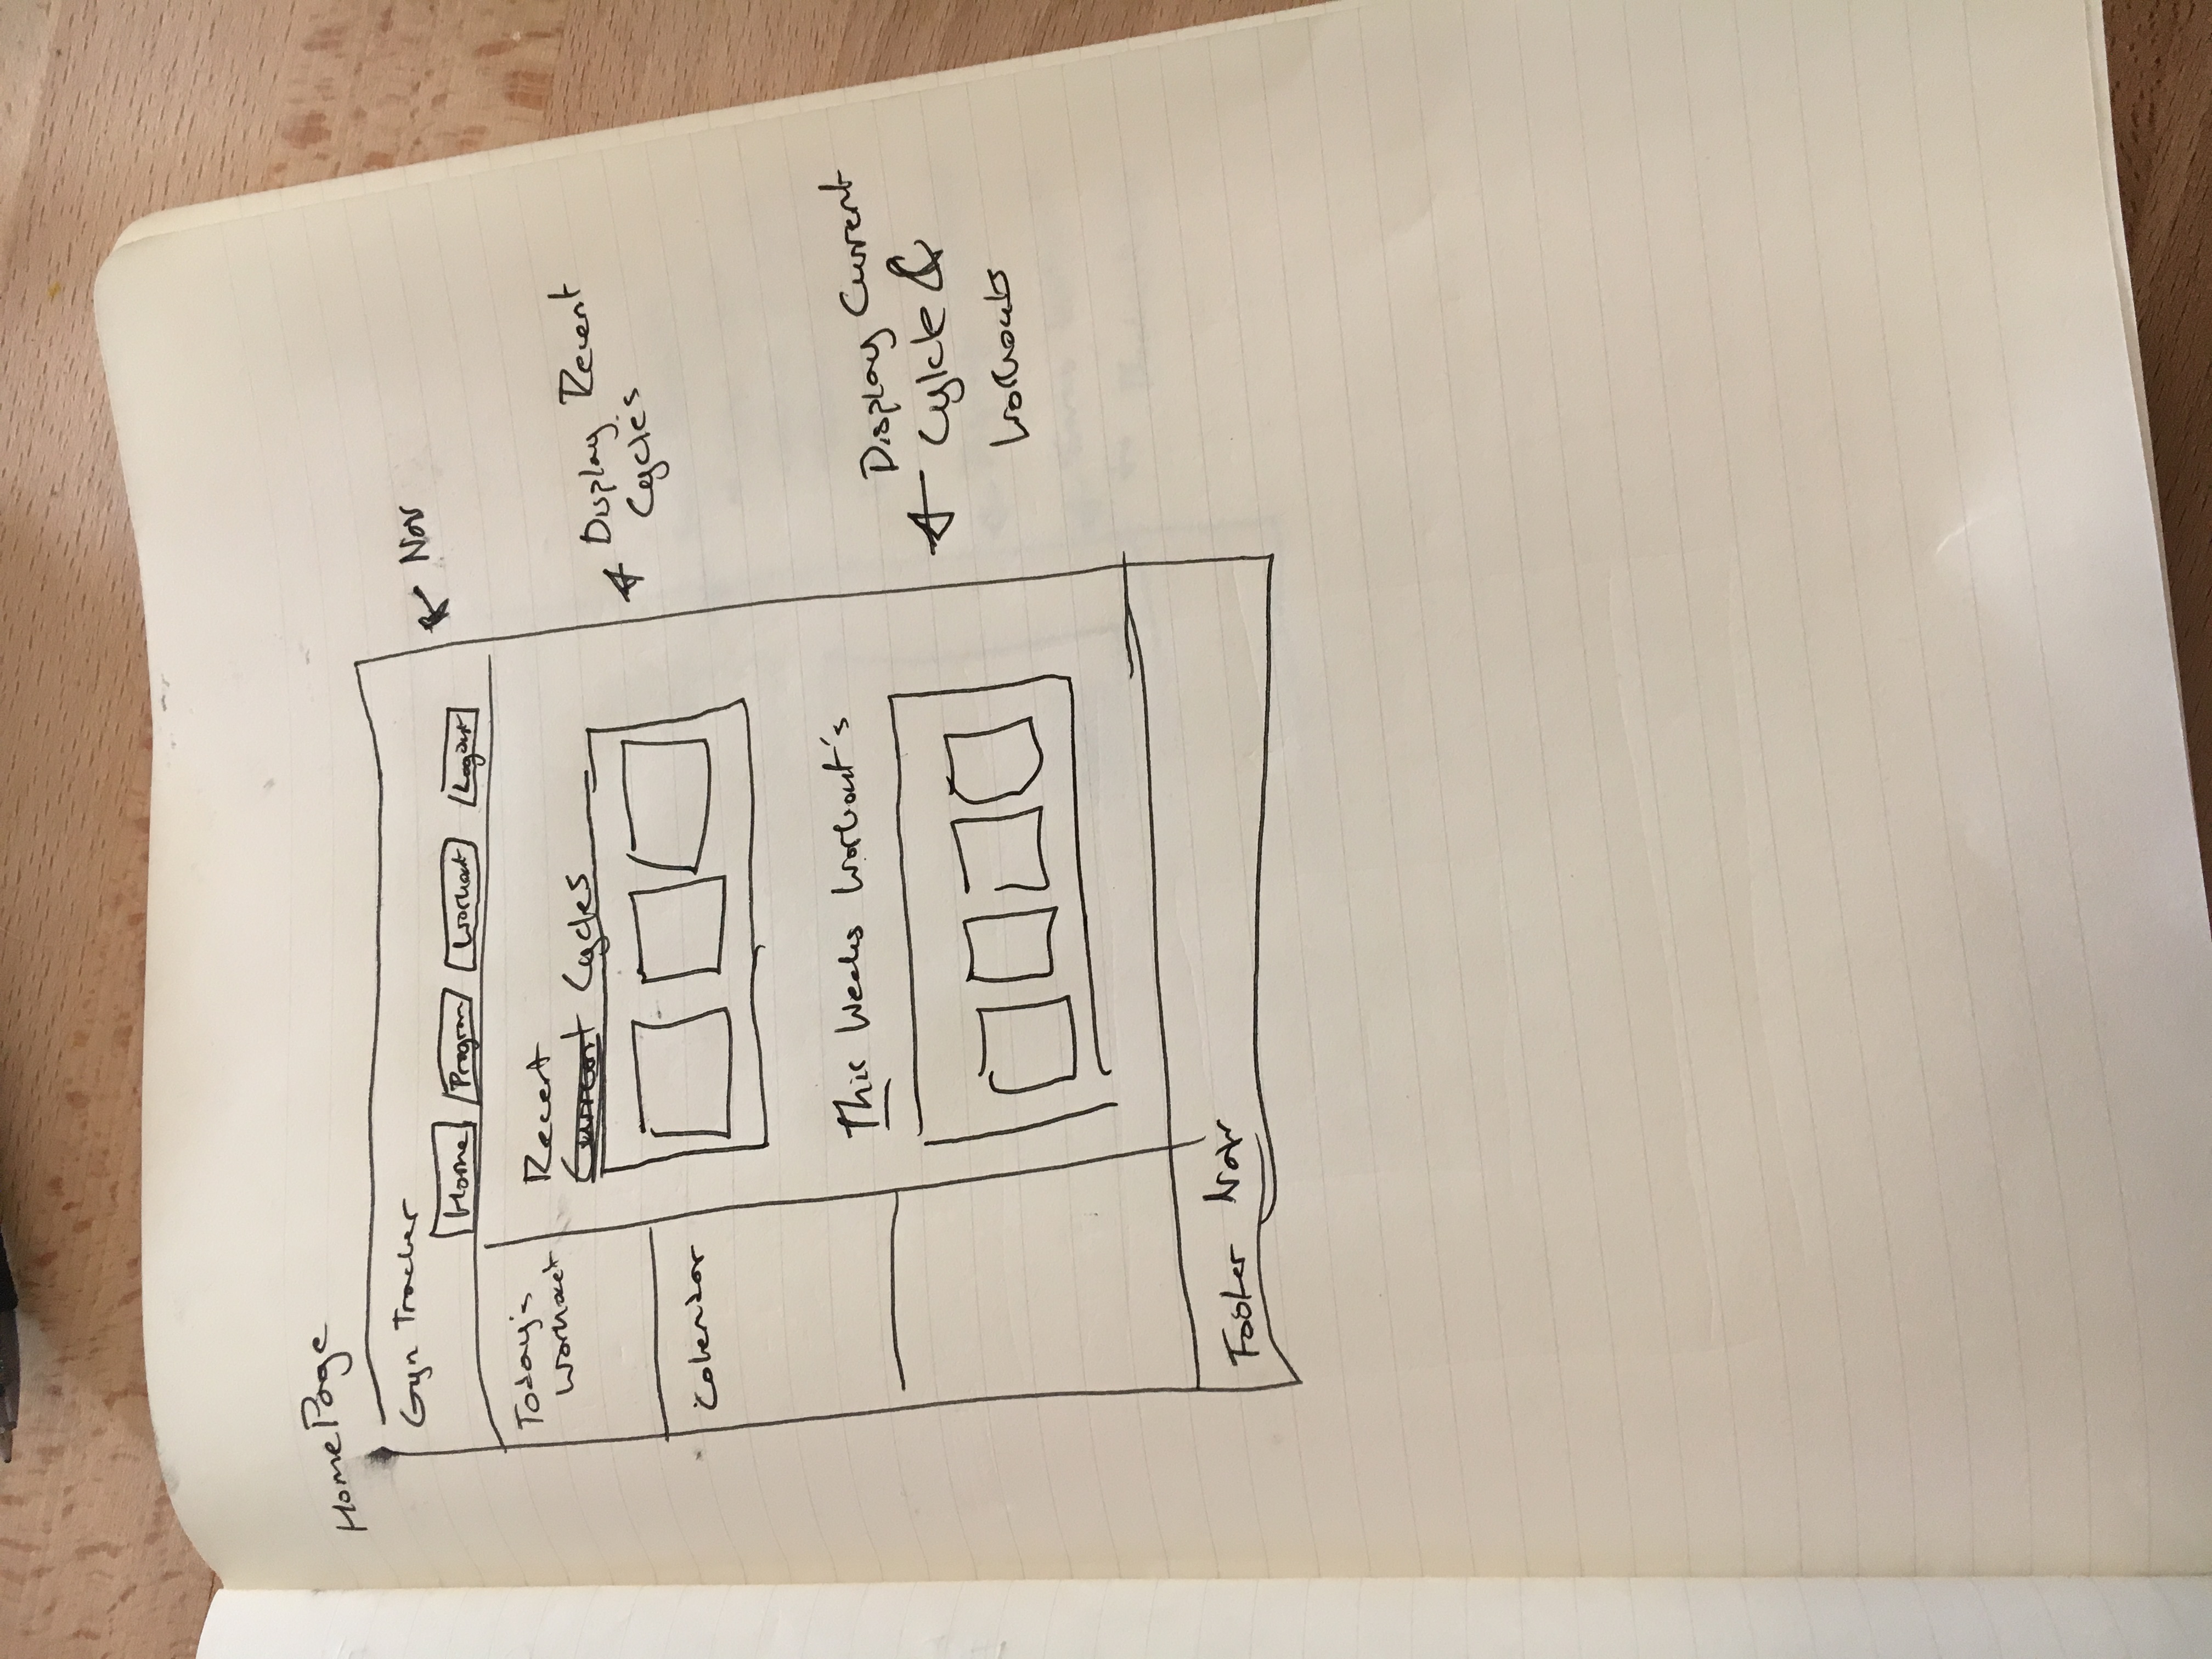 HomePage
Gym Tracker
Home Program Workout Logout
Nav
Today's
Workout
Recent
Current Cycles
Display Recent
Cycles
Calendar
This Weeks Workout's
Display Current
Cylcle &
Workouts
Footer Nav